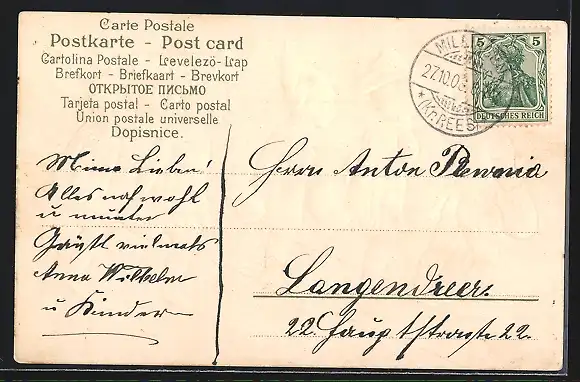 Carte Postale
Postkarte - Post card
Cartolina Postale - Levelező-Lap
Brefkort - Briefkaart - Brevkort
ОТКРЫТОЕ ПИСЬМО
Tarjeta postal - Carto postal
Union postale universelle
Dopisnice.
5 5
DEUTSCHES REICH
27.10.05
* (Kr. REES)
Meine Lieben!
Alles noch wohl
u munter
Grüßt vielmals
Anna Wilhelm
u Kinder
Herrn Anton
Langendreer.
22. Hauptstrasse 22.